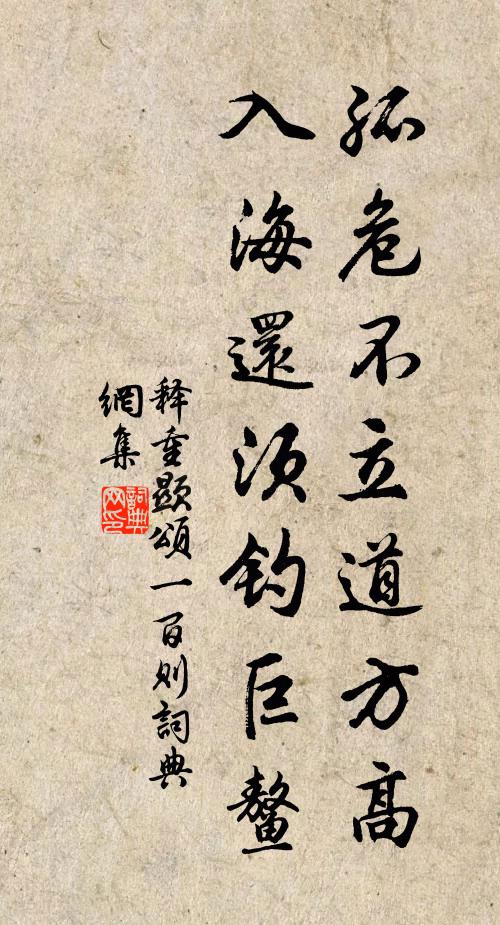 孤危不立道方高
入海還須钓巨鰲
释重顯頌一百则詞典
網集
詞典
网印